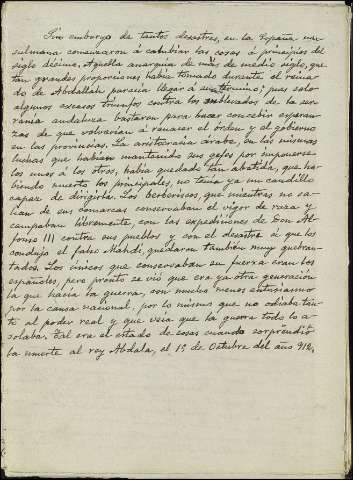 Sin embargo de tantos desastres, en la España mu-
sulmana comenzaron á cambiar las cosas á principios del
siglo décimo. Aquella anarquia de más de medio siglo, que
tan grandes proporciones habia tomado durante el reina-
do de Abdallah parecia llegar á su término; pues solo
algunos escasos triunfos contra los sublevados de la ser-
rania andaluza bastaron para hacer concebir esperan-
zas de que volverian á renacer el órden y el gobierno
en las provincias. La aristocracia árabe, en las mismas
luchas que habian mantenido sus gefes por imponerse
los unos á los otros, habia quedado tan abatida, que ha-
biendo muerto los principales, no tenia ya un caudillo
capaz de dirigirla. Los berberiscos, que mientras no sa-
lian de sus comarcas conservaban el vigor de raza y
campaban libremente, con las expediciones de Don Al-
fonso III contra sus pueblos y con el desastre á que los
condujo el falso Mahdi, quedaron también muy quebran-
tados. Los únicos que conservaban su fuerza eran los
españoles, pero pronto se vió que era ya otra generación
la que hacia la guerra, con mucho menos entusiasmo
por la causa nacional, por lo mismo que no odiaba tan-
to al poder real y que veia que la guerra todo lo a-
solaba. Tal era el estado de cosas cuando sorprendió
la muerte al rey Abdala, el 15 de Octubre del año 912.